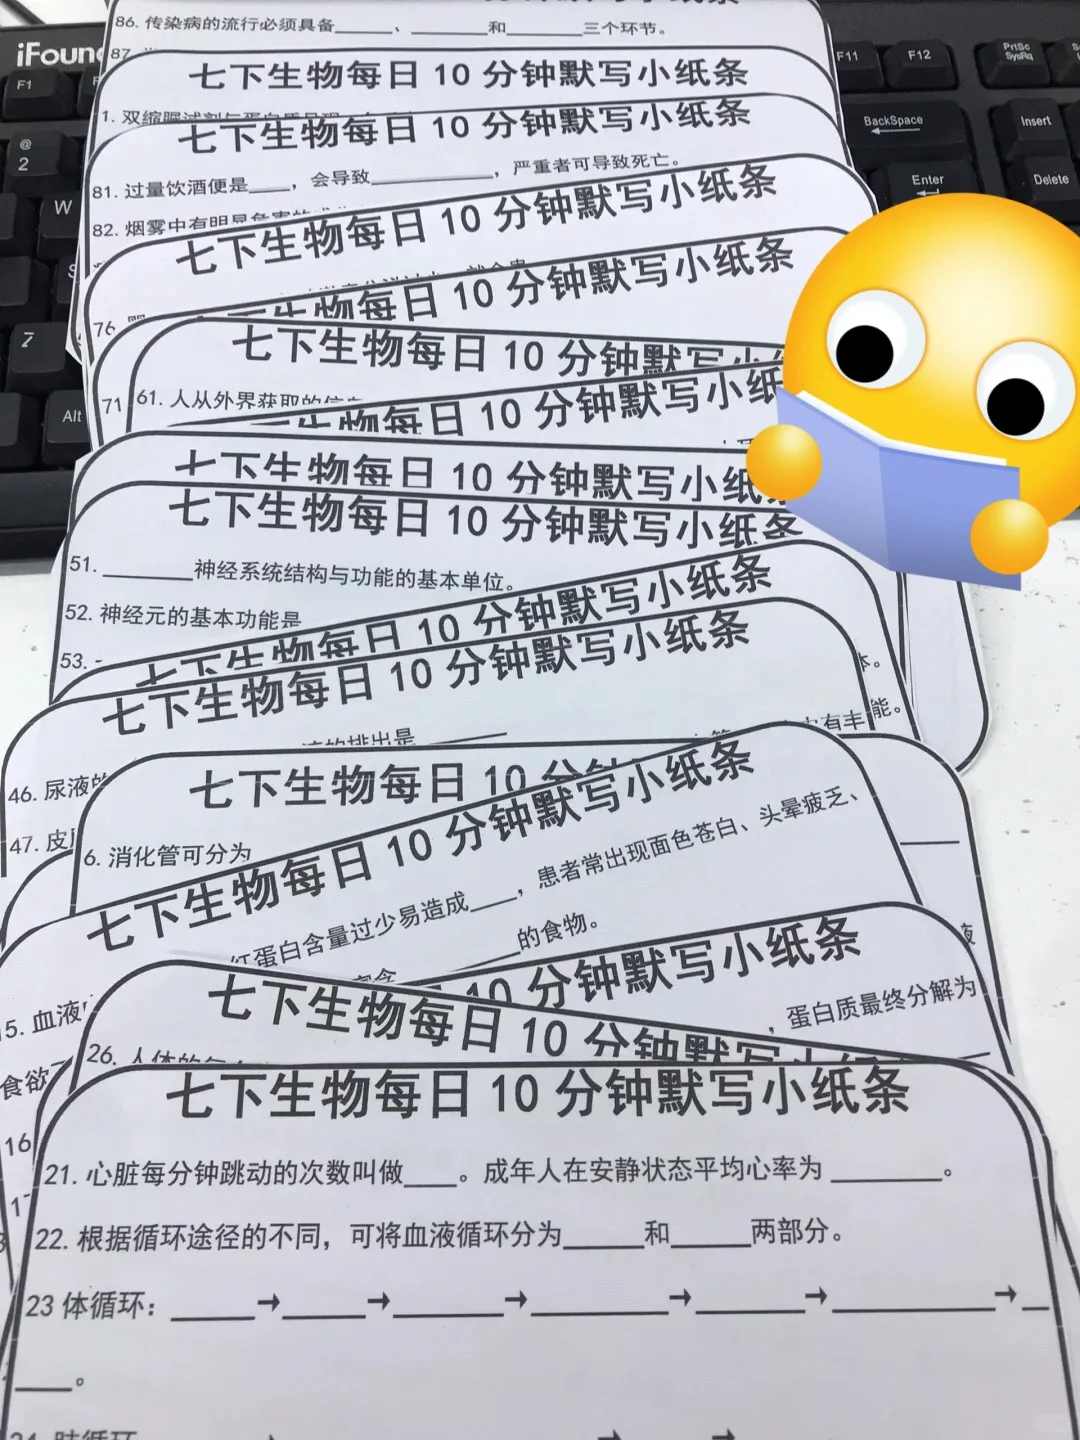 86. 传染病的流行必须具备______、______和______三个环节。
87.
七下生物每日 10 分钟默写小纸条
1. 双缩脲试剂与蛋白质
七下生物每日 10 分钟默写小纸条
81. 过量饮酒便是____，会导致__________，严重者可导致死亡。
82. 烟雾中有明显危害的
七下生物每日 10 分钟默写小纸条
76.
七下生物每日 10 分钟默写小纸条
71
七下生物每日 10 分钟默写小
61. 人从外界获取的信
七下生物每日 10 分钟默写小纸
七下生物每日 10 分钟默写小纸
七下生物每日 10 分钟默写小纸条
51. ________神经系统结构与功能的基本单位。
52. 神经元的基本功能是
53.
七下生物每日 10 分钟默写小纸条
体。
能。
七下生物每日 10 分钟默写小纸条
的排出是________
中有丰
46. 尿液的
47. 皮
七下生物每日 10 分钟
6. 消化管可分为
七下生物每日 10 分钟默写小纸条
红蛋白含量过少易造成____，患者常出现面色苍白、头晕疲乏、
________的食物。
15. 血液
食欲
16
液
10 分钟默写小纸条
，蛋白质最终分解为
七下生物每日 10 分钟默写小纸条
26. 人体的每
七下生物每日 10 分钟默写小纸条
21. 心脏每分钟跳动的次数叫做____。成年人在安静状态平均心率为 ________。
22. 根据循环途径的不同，可将血液循环分为______和______两部分。
23 体循环：______→______→________→__________→________→____________→__
____。
24. 肺循环
iFoun
F1
@
2
W
Z
Alt
F11
F12
PrtSc
SysRq
BackSpace
Insert
Enter
Delete